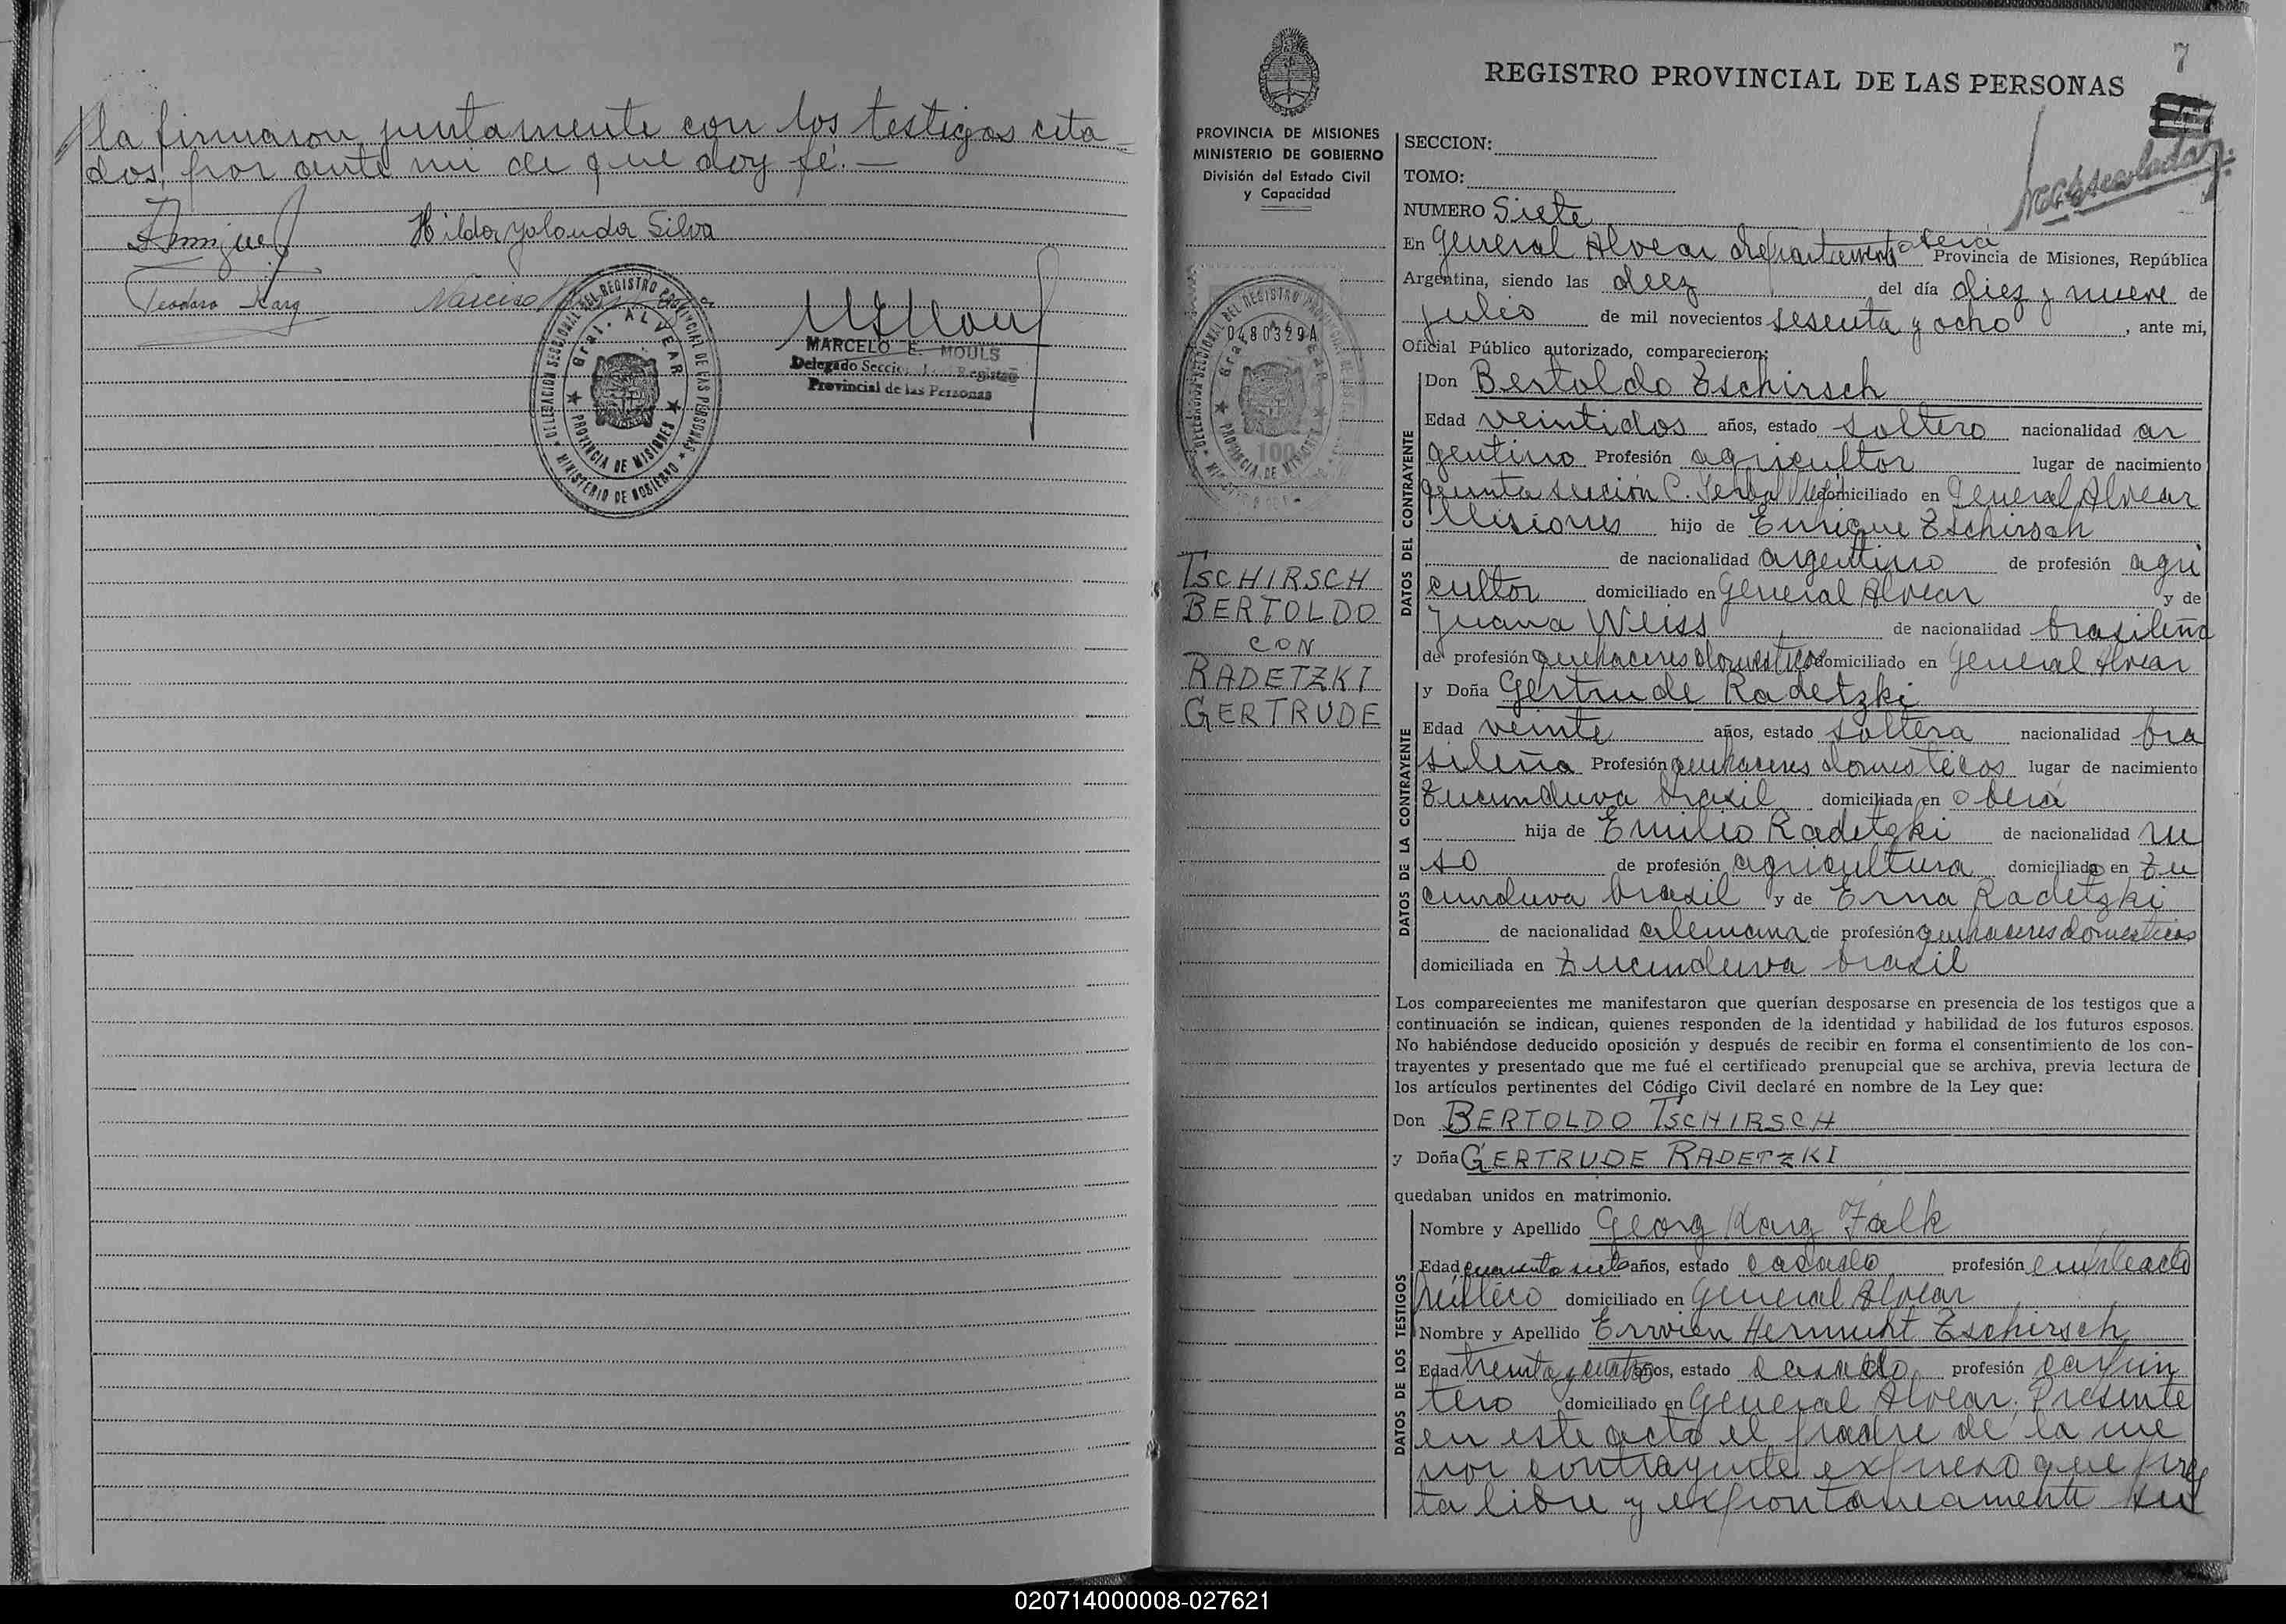 la firmaron juntamente con los testigos cita
dos, por ante mi de que doy fé.—
Hilda Yolanda Silva
Teodoro Karg
Narciso
MARCELO E. MOULS
Delegado Seccional Registro
Provincial de las Personas
DELEGACION SECCIONAL DEL REGISTRO PROVINCIAL DE LAS PERSONAS
Gral. ALVEAR
PROVINCIA DE MISIONES
MINISTERIO DE GOBIERNO
7
REGISTRO PROVINCIAL DE LAS PERSONAS
PROVINCIA DE MISIONES
MINISTERIO DE GOBIERNO
División del Estado Civil
y Capacidad
0480329A
100
TSCHIRSCH
BERTOLDO
CON
RADETZKI
GERTRUDE
SECCION:
TOMO:
NUMERO Siete
En General Alvear departamento Oberá Provincia de Misiones, República
Argentina, siendo las diez del día diez y nueve de
julio de mil novecientos sesenta y ocho, ante mi,
Oficial Público autorizado, comparecieron:
DATOS DEL CONTRAYENTE
Don Bertoldo Tschirsch
Edad veintidos años, estado soltero nacionalidad ar
gentino Profesión agricultor lugar de nacimiento
quinta sección C. Yerbal domiciliado en General Alvear
Misiones hijo de Enrique Tschirsch
de nacionalidad argentino de profesión agri
cultor domiciliado en General Alvear y de
Juana Weiss de nacionalidad brasileña
de profesión quehaceres domesticos domiciliado en General Alvear
DATOS DE LA CONTRAYENTE
y Doña Gertrude Radetzki
Edad veinte años, estado soltera nacionalidad bra
sileña Profesión quehaceres domesticos lugar de nacimiento
Tucunduva brasil domiciliada en Oberá
hija de Emilio Radetzki de nacionalidad ru
so de profesión agricultura domiciliado en Tu
cunduva brasil y de Erna Radetzki
de nacionalidad alemana de profesión quehaceres domesticos
domiciliada en Tucunduva brasil
Los comparecientes me manifestaron que querían desposarse en presencia de los testigos que a
continuación se indican, quienes responden de la identidad y habilidad de los futuros esposos.
No habiéndose deducido oposición y después de recibir en forma el consentimiento de los con-
trayentes y presentado que me fué el certificado prenupcial que se archiva, previa lectura de
los artículos pertinentes del Código Civil declaré en nombre de la Ley que:
Don BERTOLDO TSCHIRSCH
y Doña GERTRUDE RADETZKI
quedaban unidos en matrimonio.
DATOS DE LOS TESTIGOS
Nombre y Apellido Georg Karg Falk
Edad cuarenta siete años, estado casado profesión empleado
público domiciliado en General Alvear
Nombre y Apellido Ervien Hermunt Tschirsch
Edad treinta y cuatro años, estado casado profesión carpin
tero domiciliado en General Alvear. Presente
en este acto el padre de la me
nor contrayente expreso que pres
ta libre y expontaneamente su
020714000008-027621